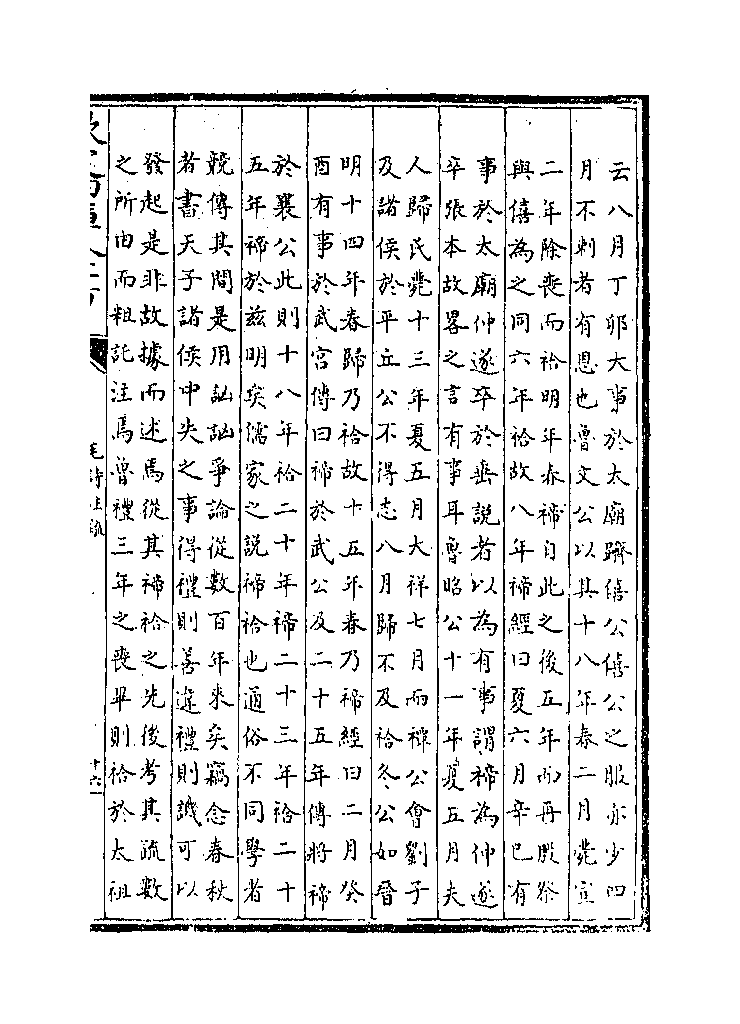 云八月丁卯大事於太廟躋僖公僖公之服亦少四
月不刺者有恩也魯文公以其十八年春二月薨宣
二年除喪而祫明年春禘自此之後五年而再殷祭
與僖為之同六年祫故八年禘經曰夏六月辛巳有
事於太廟仲遂卒於垂說者以為有事謂禘為仲遂
卒張本故畧之言有事耳魯昭公十一年夏五月夫
人歸氏薨十三年夏五月大祥七月而禫公會劉子
及諸侯於平丘公不得志八月歸不及祫冬公如晉
明十四年春歸乃祫故十五年春乃禘經曰二月癸
酉有事於武宮傳曰禘於武公及二十五年傳將禘
於襄公此則十八年祫二十年禘二十三年祫二十
五年禘於兹明矣儒家之說禘祫也通俗不同學者
競傳其間是用訩訩爭論從數百年來矣竊念春秋
者書天子諸侯中失之事得禮則善違禮則譏可以
發起是非故據而述焉從其禘祫之先後考其疏數
之所由而粗記注焉魯禮三年之喪畢則祫於太祖
毛詩注疏
十六